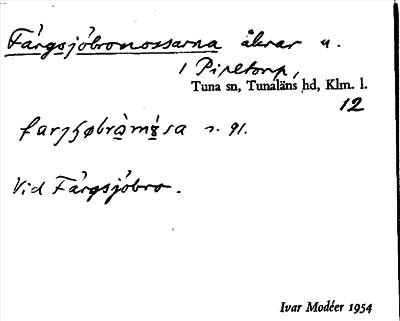 Färgsjöbromossarna åkrar u.
1 Pipetorp,
Tuna sn, Tunaläns hd, Klm. l.
12
s. 91.
Vid Färgsjöbro.
Ivar Modéer 1954